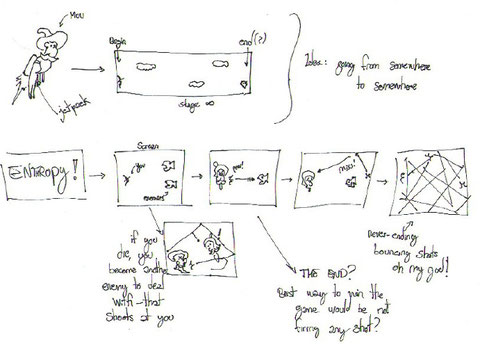 You
jetpack
Begin
end(?)
stage ∞
Idea: going from somewhere
to somewhere
ENTROPY!
Screen
you
enemies
miss!
if you
die, you
become another
enemy to deal
with - that
shoots at you
THE END?
Best way to win the
game would be not
firing any shot?
never-ending
bouncing shots
oh my god!